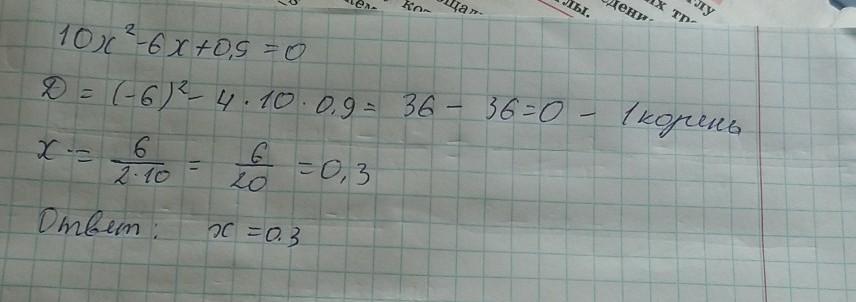 щал.
ко
лы.
их тр
глу
едени
10x² - 6x + 0,9 = 0
D = (-6)² - 4 · 10 · 0,9 = 36 - 36 = 0 - 1 корень
x = 6/(2·10) = 6/20 = 0,3
Ответ: x = 0.3